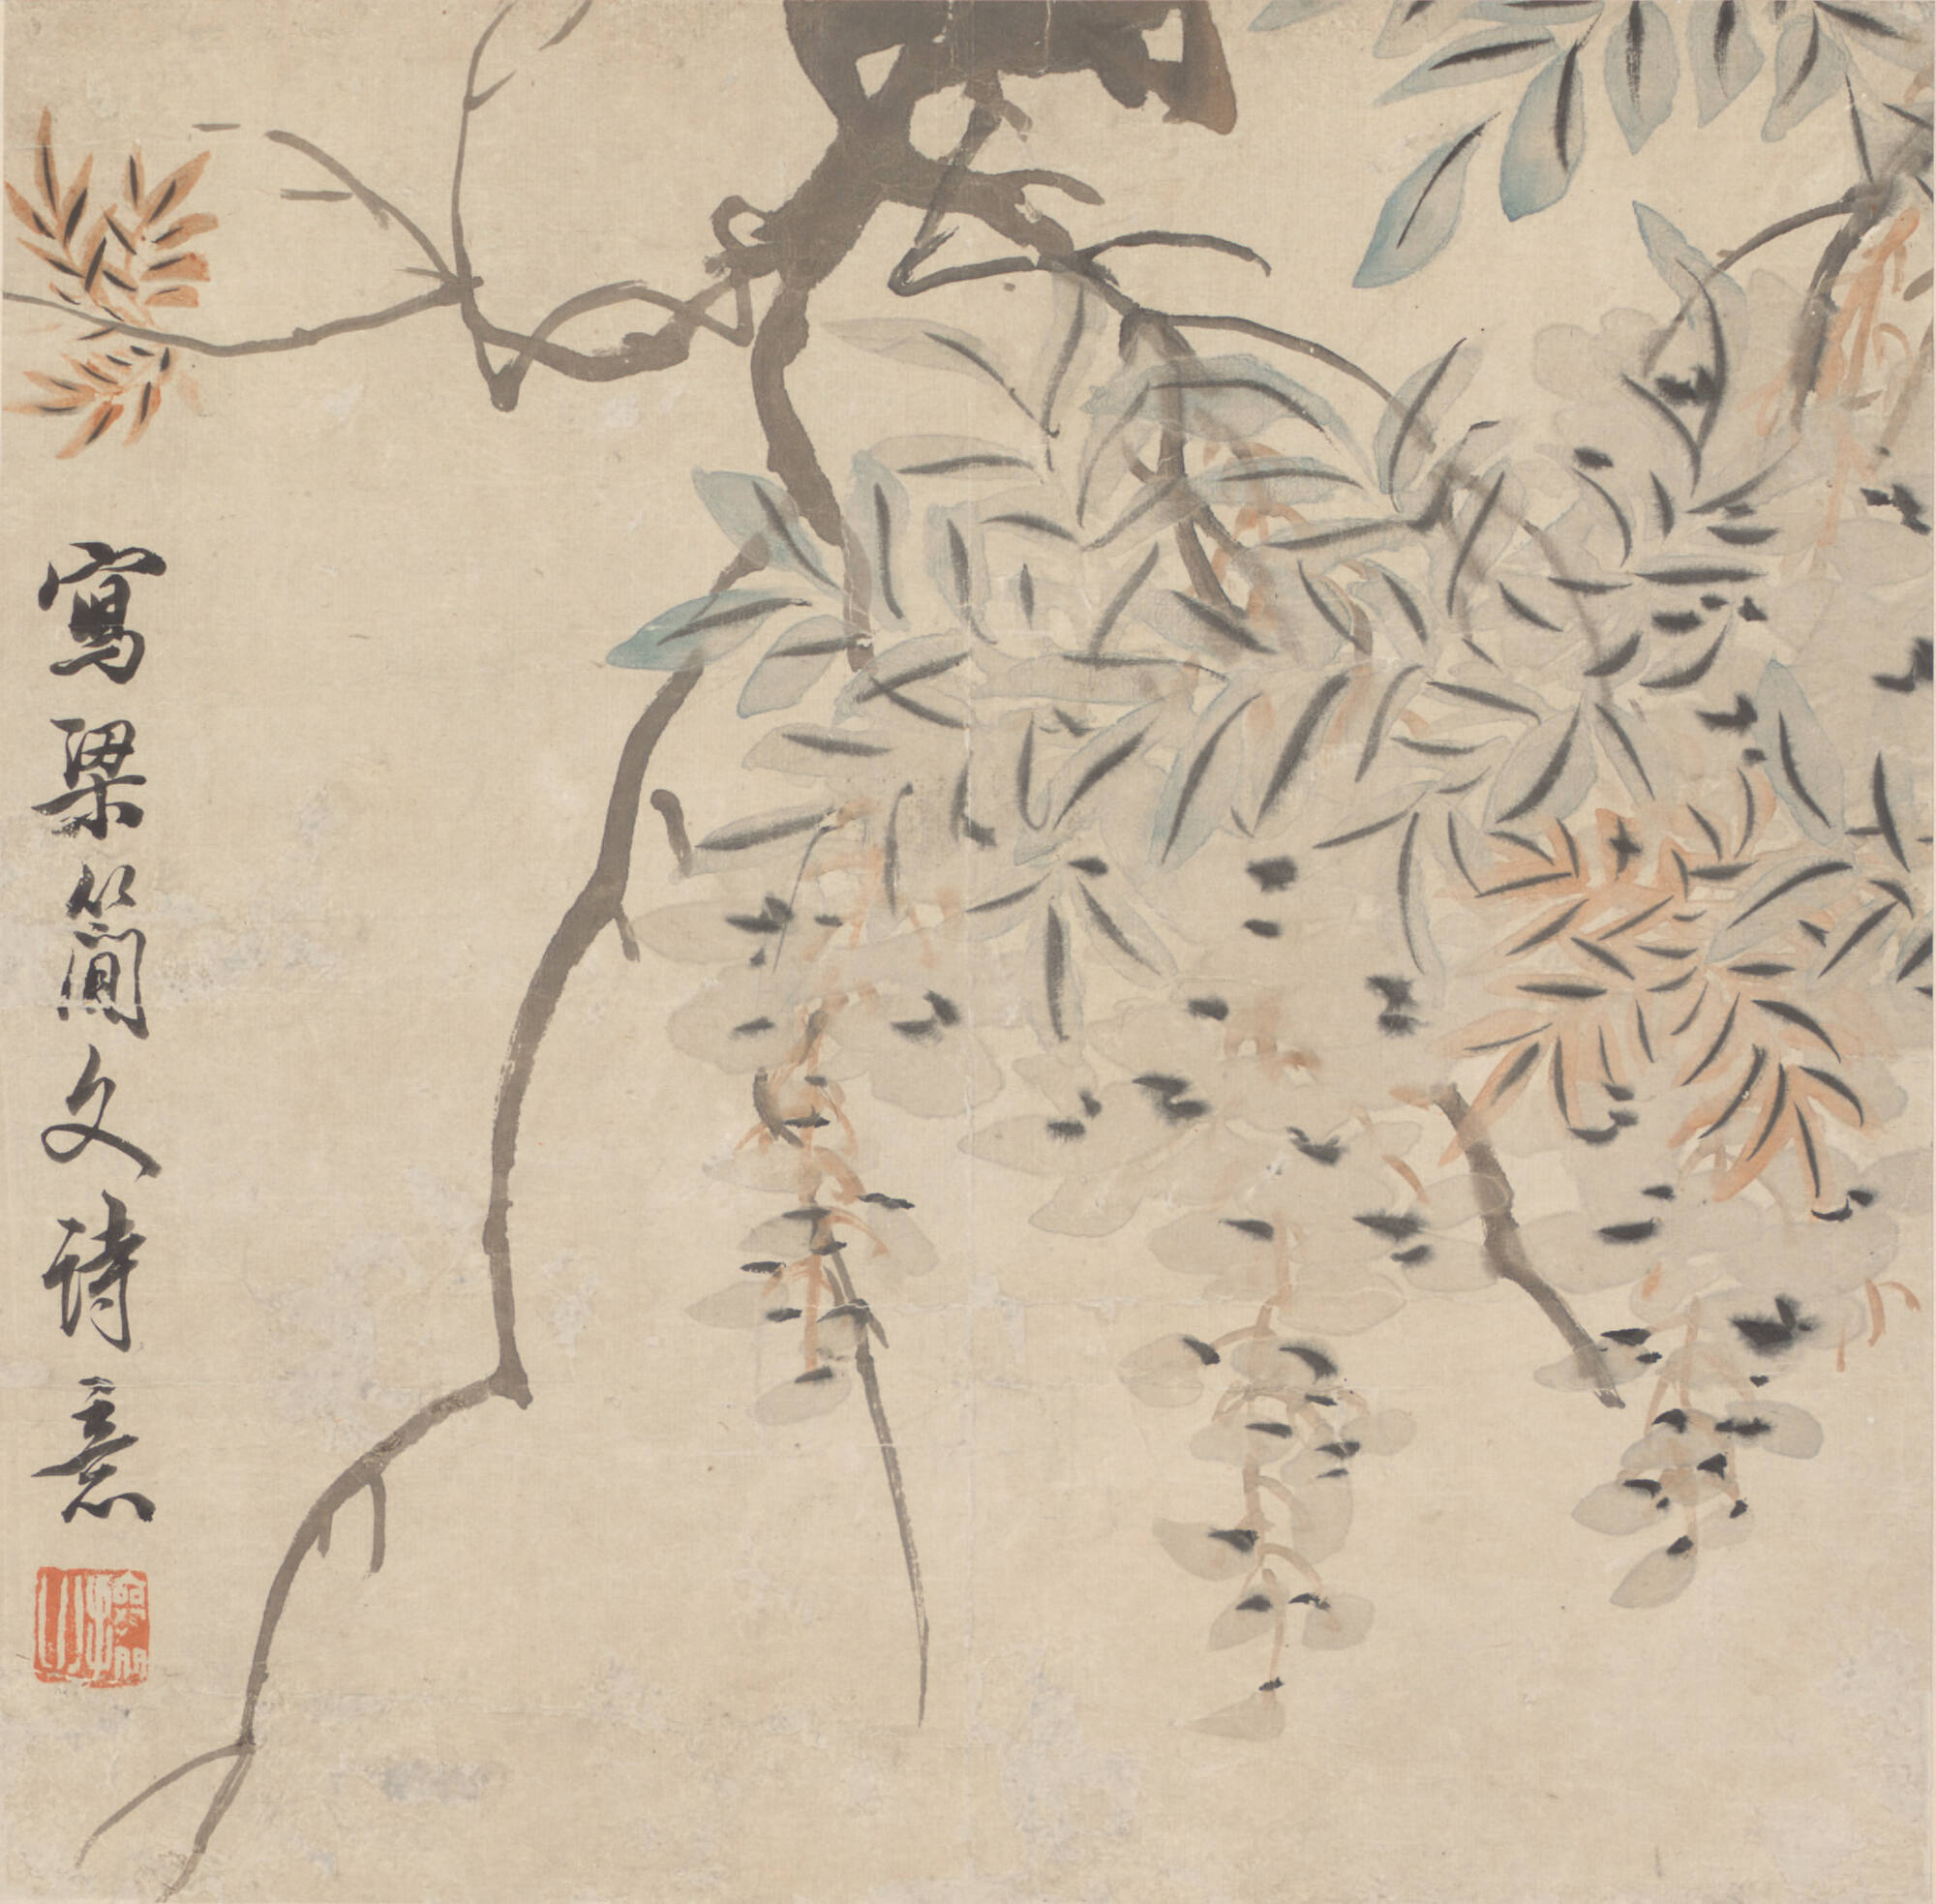 寫梁簡文詩意